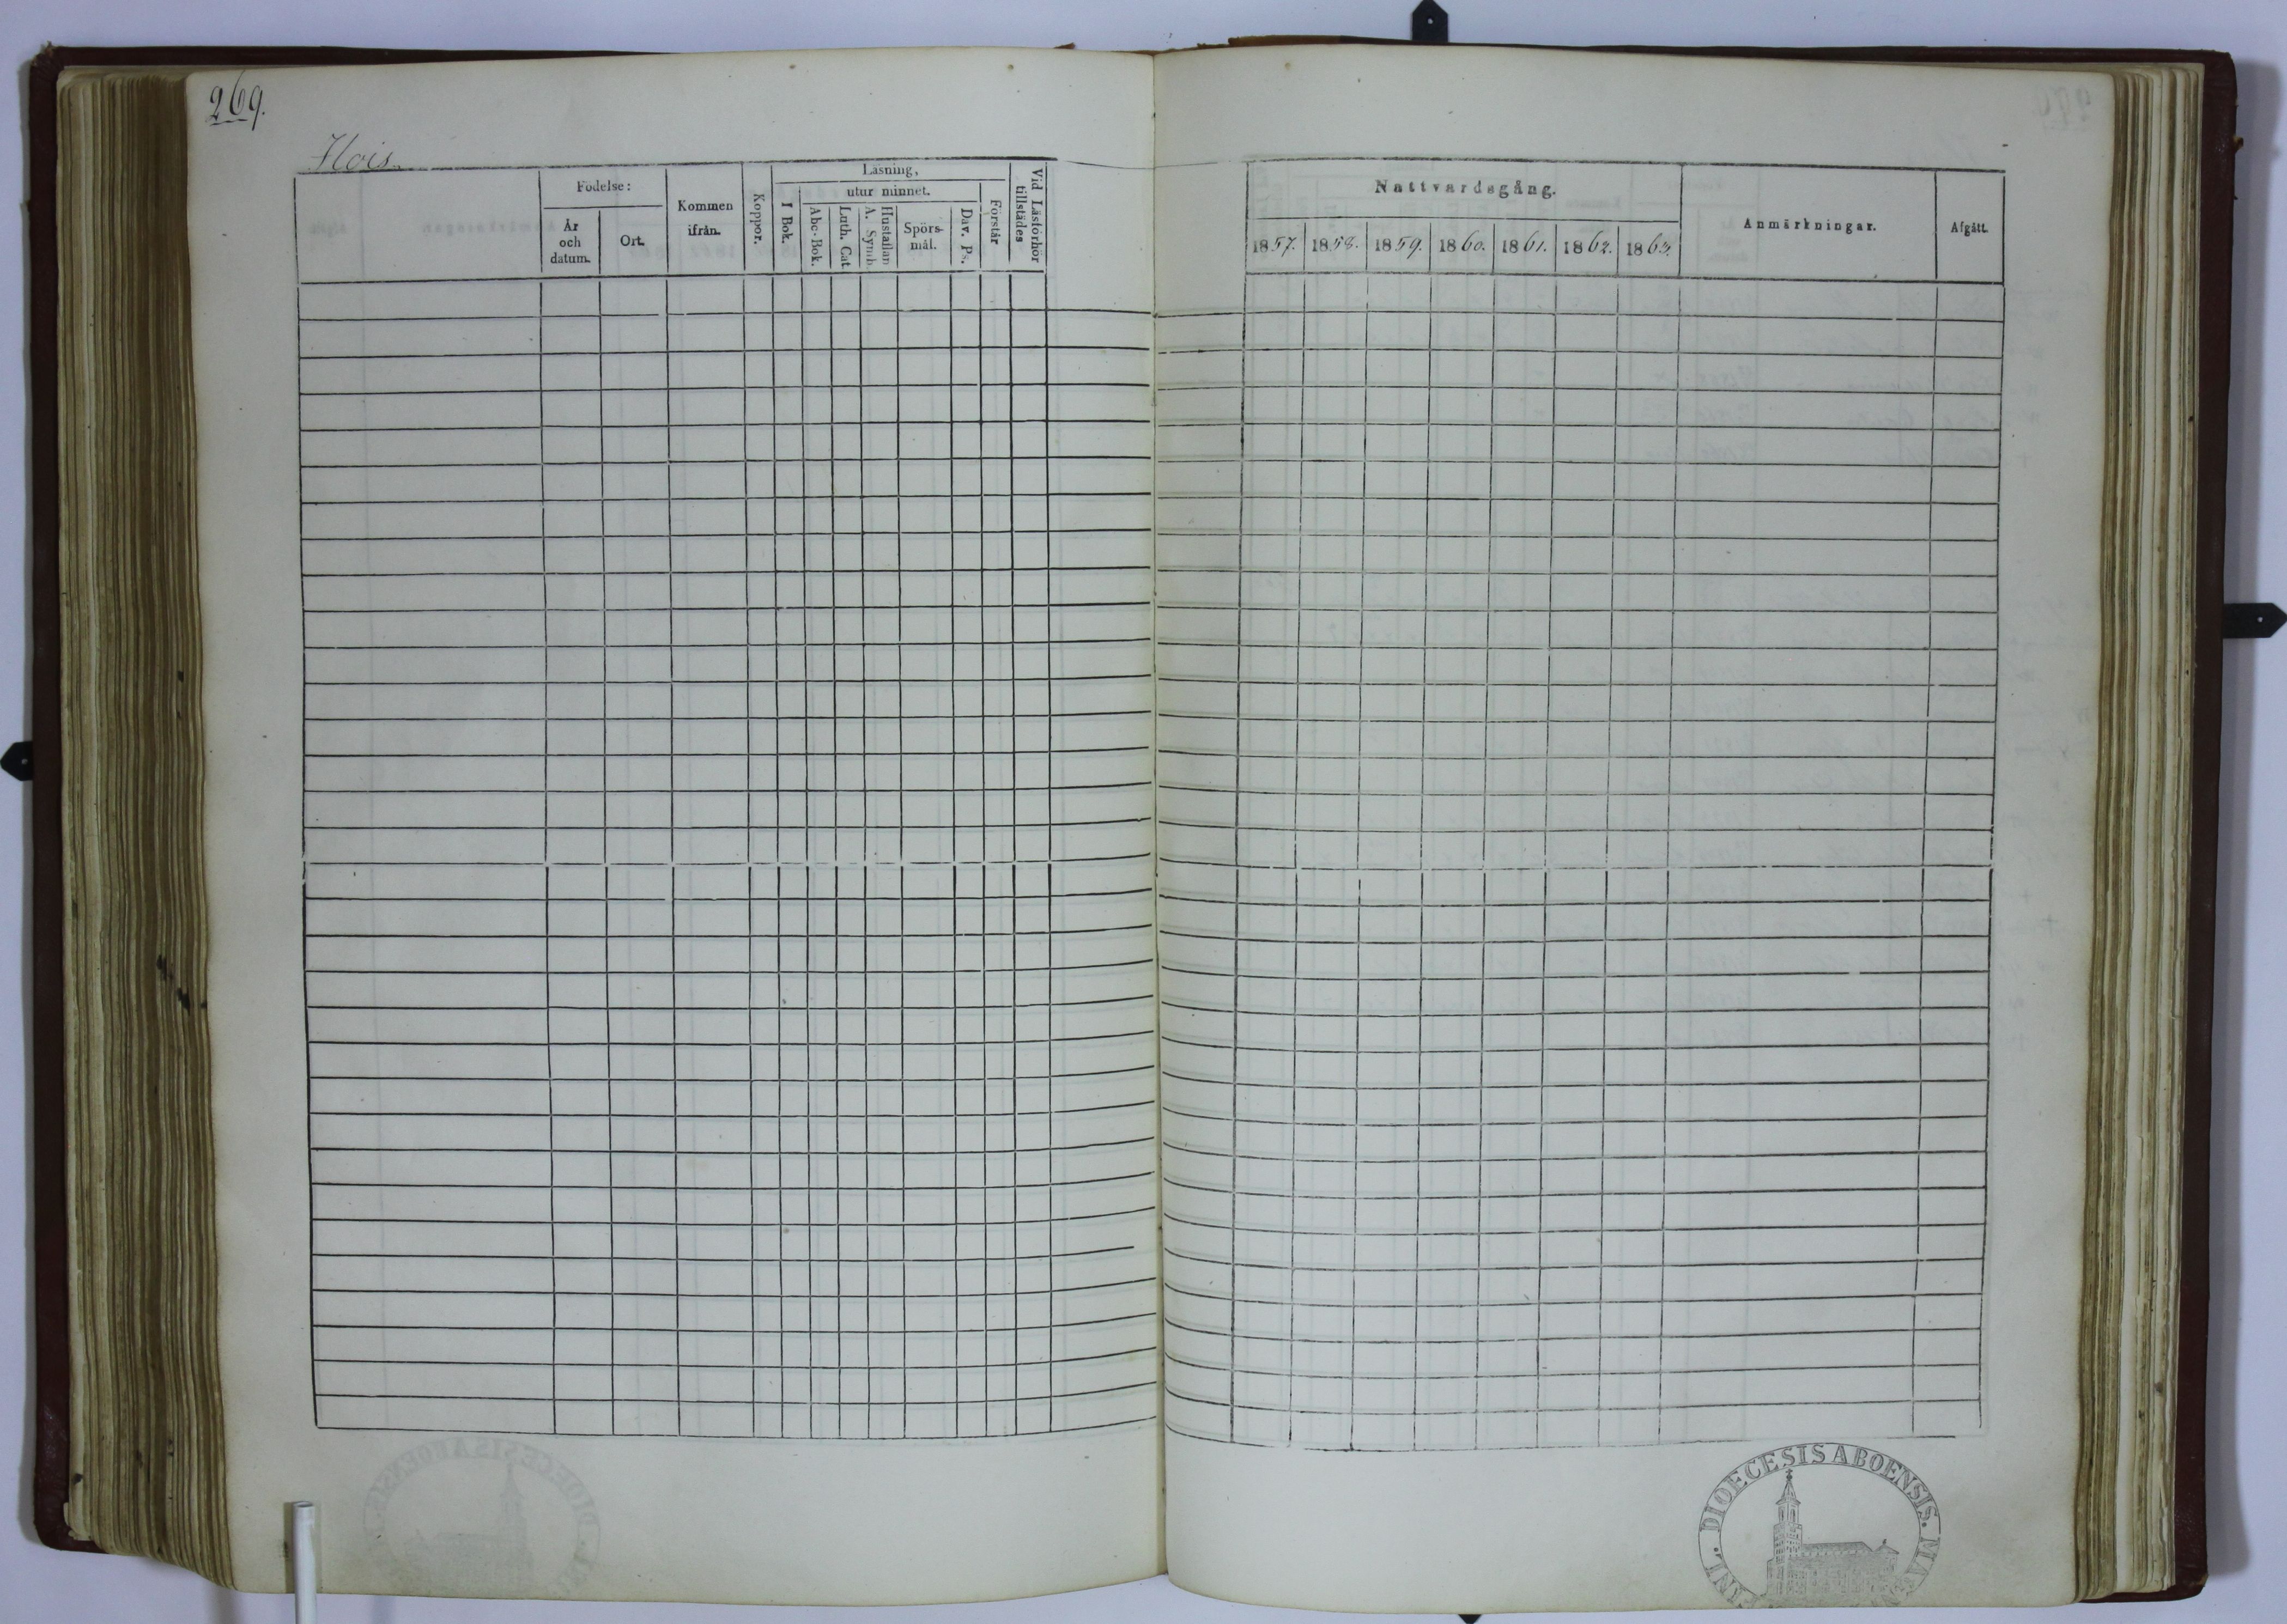 269.
Flois
Födelse:
År
och
datum.
Ort.
Kommen
ifrån.
Koppor.
Läsning,
I Bok.
utur minnet.
Abc-Bok.
Luth. Cat.
Hustaflan
A. Symb.
Spörs-
mål.
Dav. Ps.
Förstår
Vid Läsförhör
tillstädes
Nattvardsgång.
1857. 1858. 1859. 1860. 1861. 1862. 1863.
Anmärkningar.
Afgått.
DIOECESIS ABOENSIS.